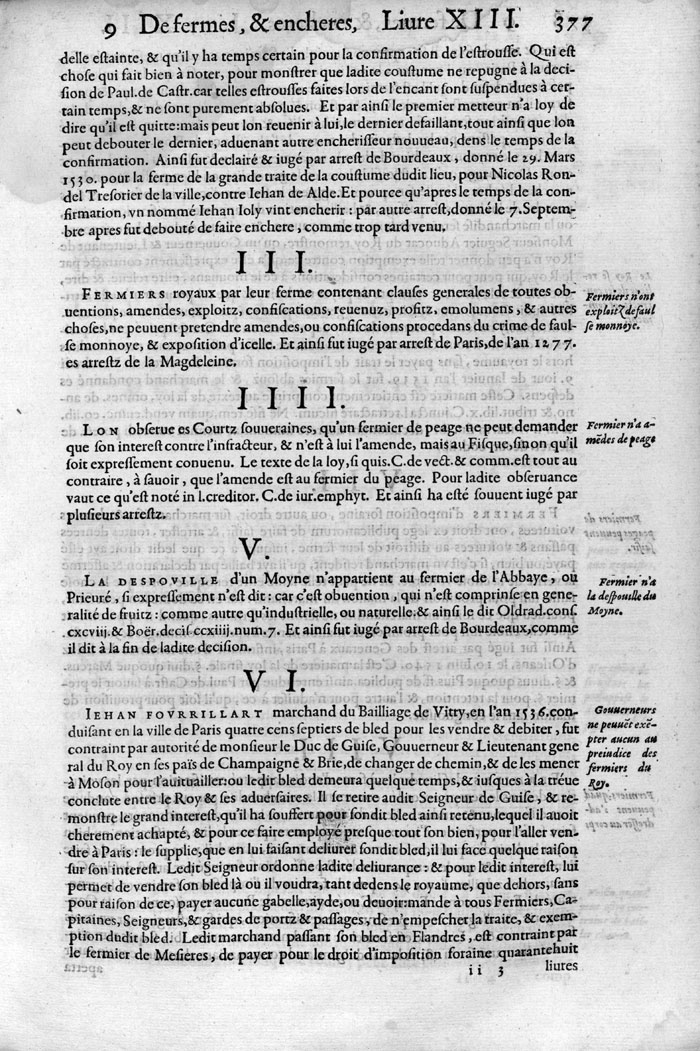 9 De fermes, & encheres, Liure XIII. 377
delle estainte, & qu'il y ha temps certain pour la confirmation de l'estrousse. Qui est
chose qui fait bien à noter, pour monstrer que ladite coustume ne repugne à la deci-
sion de Paul. de Castr. car telles estrousses faites lors de l'encant sont suspendues à cer-
tain temps, & ne sont purement absolues. Et par ainsi le premier metteur n'a loy de
dire qu'il est quitte: mais peut lon reuenir à lui, le dernier defaillant, tout ainsi que lon
peut debouter le dernier, aduenant autre encherisseur nouueau, dens le temps de la
confirmation. Ainsi fut declairé & iugé par arrest de Bourdeaux, donné le 29. Mars
1530. pour la ferme de la grande traite de la coustume dudit lieu, pour Nicolas Ron-
del Tresorier de la ville, contre Iehan de Alde. Et pource qu'apres le temps de la con-
firmation, vn nommé Iehan Ioly vint encherir : par autre arrest, donné le 7. Septem-
bre apres fut debouté de faire enchere, comme trop tard venu.
III.
FERMIERS royaux par leur ferme contenant clauses generales de toutes ob-
uentions, amendes, exploitz, confiscations, reuenuz, profitz, emolumens, & autres
choses, ne peuuent pretendre amendes, ou confiscations procedans du crime de faul-
se monnoye, & exposition d'icelle. Et ainsi fut iugé par arrest de Paris, de l'an 1277.
es arrestz de la Magdeleine.
Fermiers n'ont
exploitz de faul
se monnoye.
IIII.
LON obserue es Courtz souueraines, qu'un fermier de peage ne peut demander
que son interest contre l'infracteur, & n'est à lui l'amende, mais au Fisque, sinon qu'il
soit expressement conuenu. Le texte de la loy, si quis. C. de vect. & comm. est tout au
contraire, à sauoir, que l'amende est au fermier du peage. Pour ladite obseruance
vaut ce qu'est noté in l. creditor. C. de iur. emphyt. Et ainsi ha esté souuent iugé par
plusieurs arrestz.
Fermier n'a a-
mēdes de peage
V.
LA DESPOVILLE d'un Moyne n'appartient au fermier de l'Abbaye, ou
Prieuré, si expressement n'est dit : car c'est obuention, qui n'est comprinse en gene-
ralité de fruitz : comme autre qu'industrielle, ou naturelle. & ainsi le dit Oldrad. cons.
cxcviij. & Boër. decis. ccxiiij. num. 7. Et ainsi fut iugé par arrest de Bourdeaux, comme
il dit à la fin de ladite decision.
Fermier n'a
la despouille du
Moyne.
VI.
IEHAN FOVRRILLART marchand du Bailliage de Vitry, en l'an 1536. con-
duisant en la ville de Paris quatre cens septiers de bled pour les vendre & debiter, fut
contraint par autorité de monsieur le Duc de Guise, Gouuerneur & Lieutenant gene
ral du Roy en ses païs de Champaigne & Brie, de changer de chemin, & de les mener
à Moson pour l'auituailler: ou ledit bled demeura quelque temps, & iusques à la tréue
conclute entre le Roy & ses aduersaires. Il se retire audit Seigneur de Guise, & re-
monstre le grand interest, qu'il ha souffert pour sondit bled ainsi retenu, lequel il auoit
cherement achapté, & pour ce faire employé presque tout son bien, pour l'aller ven-
dre à Paris : le supplie, que en lui faisant deliurer sondit bled, il lui face quelque raison
sur son interest. Ledit Seigneur ordonne ladite deliurance : & pour ledit interest, lui
permet de vendre son bled là ou il voudra, tant dedens le royaume, que dehors, sans
pour raison de ce, payer aucune gabelle, ayde, ou deuoir: mande à tous Fermiers, Ca-
pitaines, Seigneurs, & gardes de portz & passages, de n'empescher la traite, & exem-
ption dudit bled. Ledit marchand passant son bled en Flandres, est contraint par
le fermier de Mesieres, de payer pour le droit d'imposition foraine quarantehuit
Gouuerneurs
ne peuuēt exē-
pter aucun au
preiudice des
fermiers du
Roy.
ii 3 liures